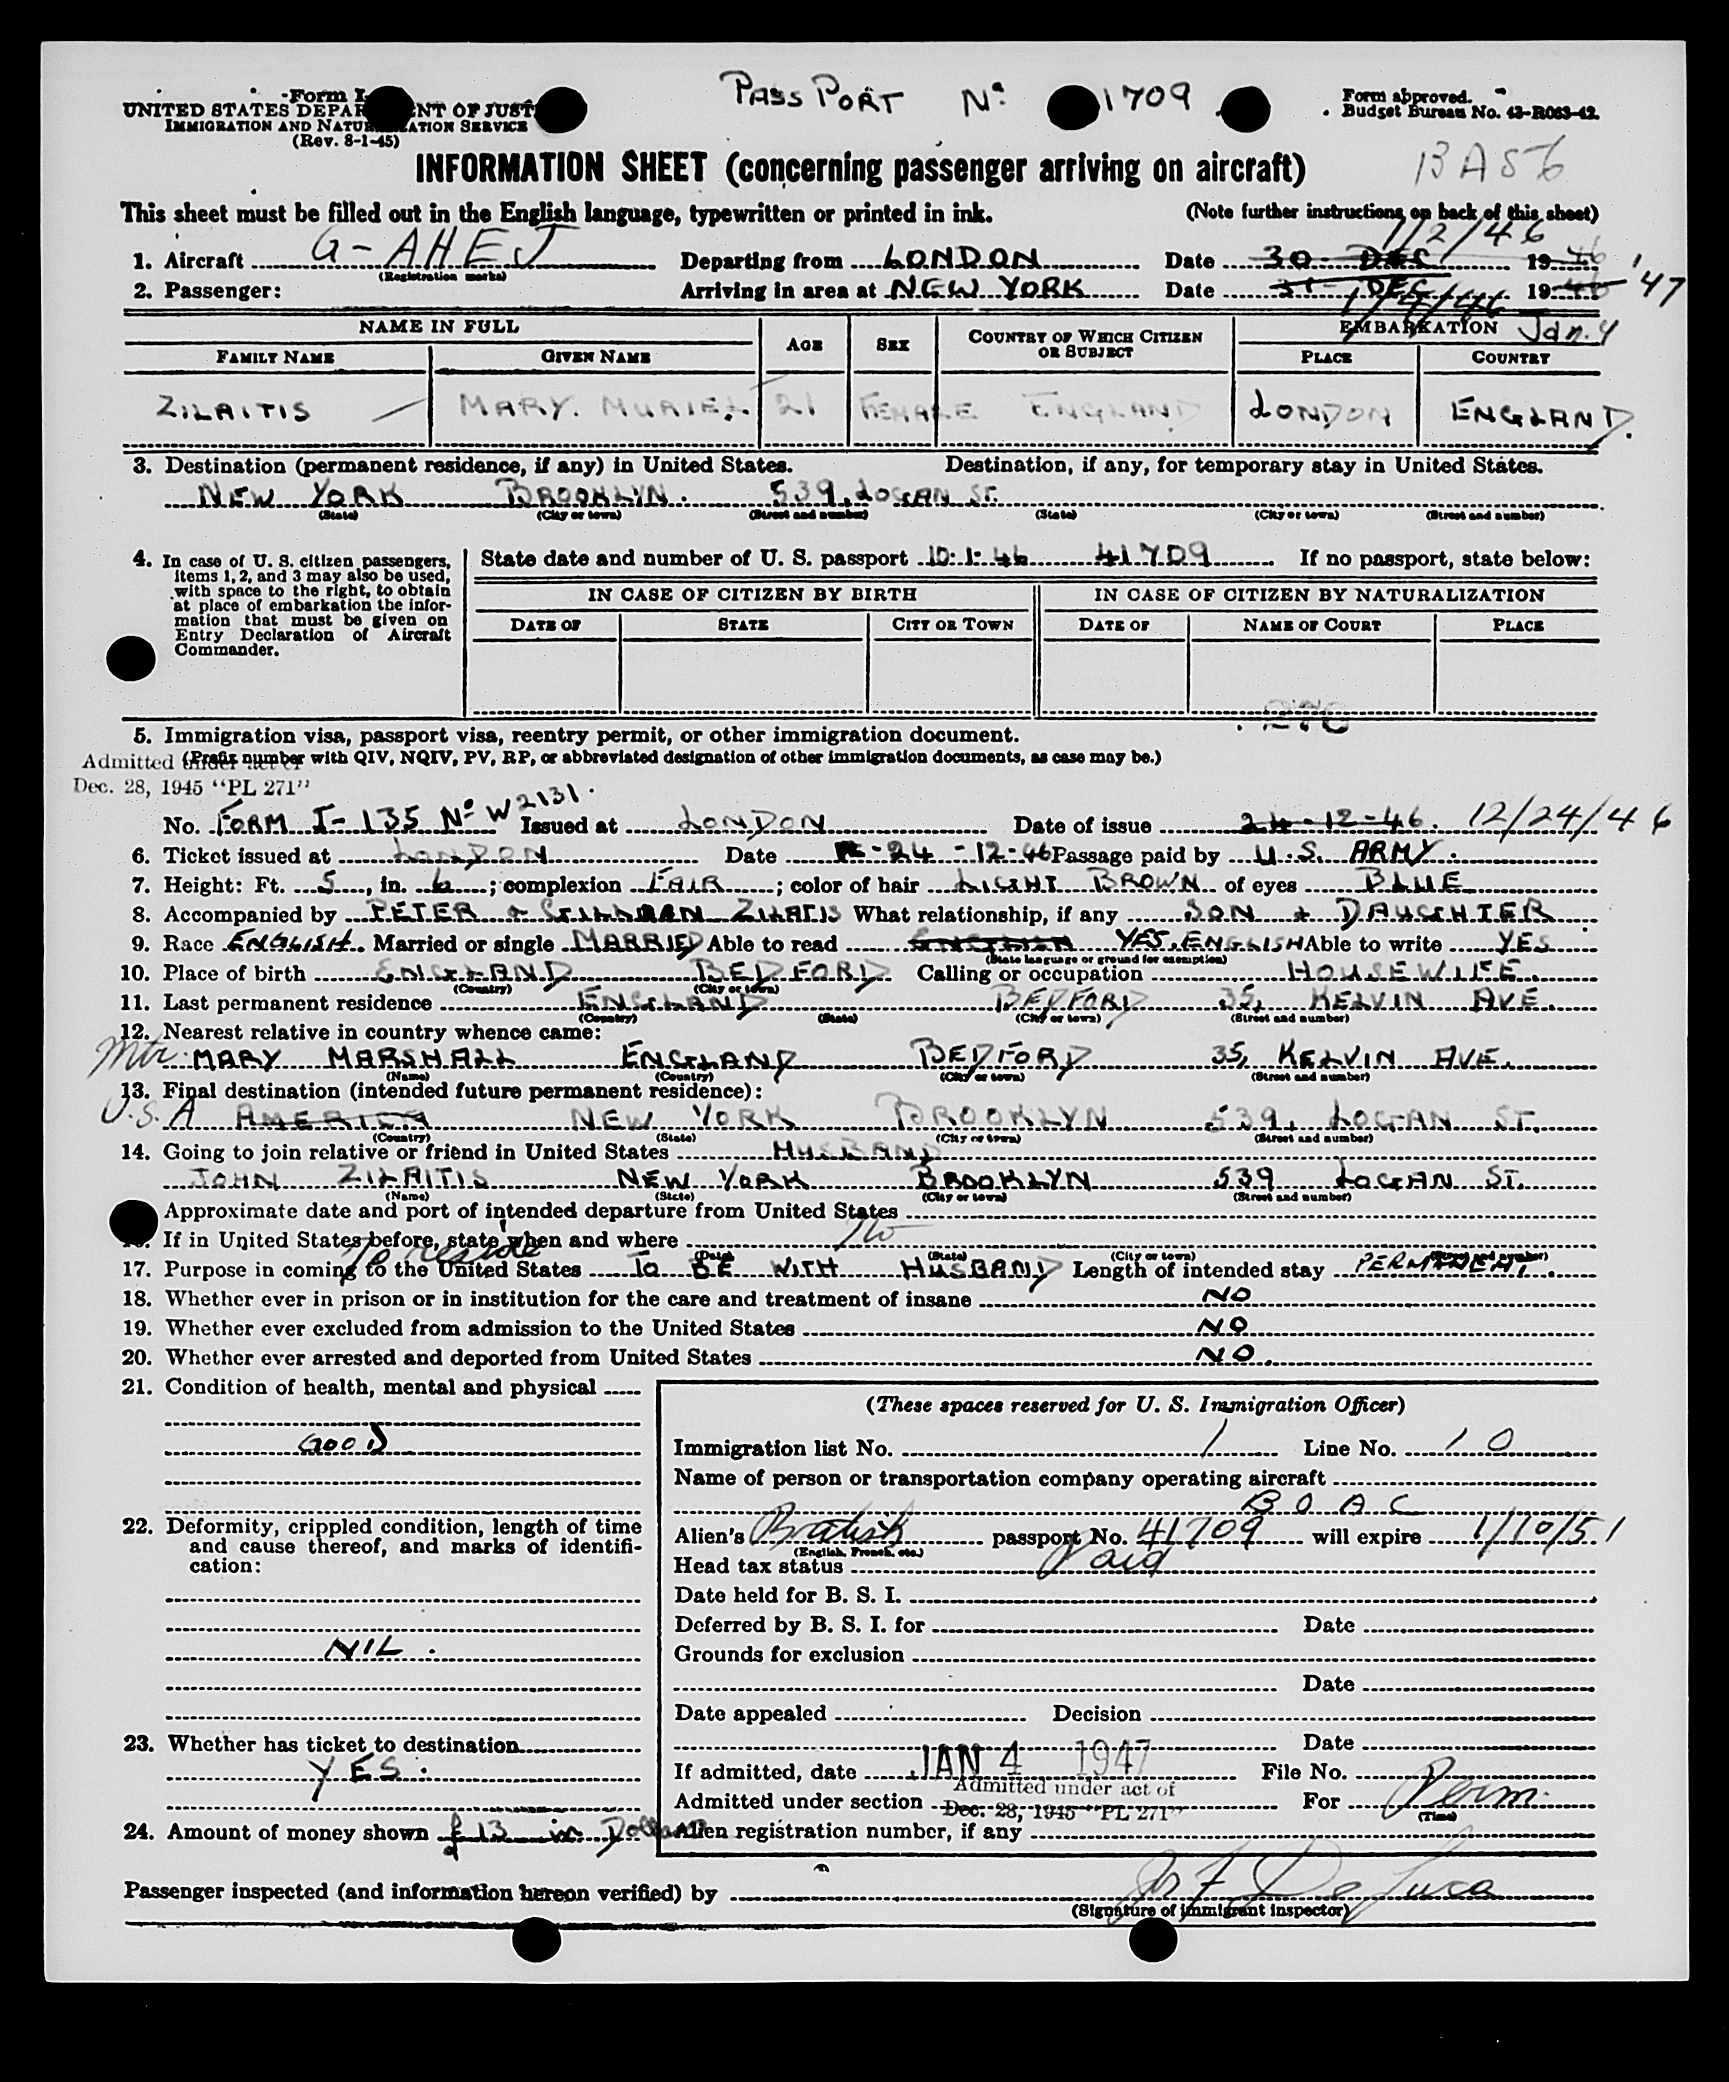 PASSPORT Nº 1709
Form I-
UNITED STATES DEPAR ENT OF JUST
IMMIGRATION AND NATURALIZATION SERVICE
(Rev. 8-1-45)
Form approved.
Budget Bureau No. 43-R063-42.
INFORMATION SHEET (concerning passenger arriving on aircraft)
This sheet must be filled out in the English language, typewritten or printed in ink.
(Note further instructions on back of this sheet)
1/2/46
1. Aircraft G-AHEJ Departing from LONDON Date 30 DEC 1946
(Registration marks)
2. Passenger: Arriving in area at NEW YORK Date 31 DEC 1946 '47
1/4/46
Jan. 4
NAME IN FULL AGE SEX COUNTRY OF WHICH CITIZEN OR SUBJECT EMBARKATION
FAMILY NAME GIVEN NAME PLACE COUNTRY
ZILAITIS MARY. MURIEL 21 FEMALE ENGLAND LONDON ENGLAND.
3. Destination (permanent residence, if any) in United States. Destination, if any, for temporary stay in United States.
NEW YORK BROOKLYN. 539, LOGAN ST.
(State) (City or town) (Street and number) (State) (City or town) (Street and number)
4. In case of U. S. citizen passengers, items 1, 2, and 3 may also be used, with space to the right, to obtain at place of embarkation the information that must be given on Entry Declaration of Aircraft Commander.
State date and number of U. S. passport 10.1.46 41709 If no passport, state below:
IN CASE OF CITIZEN BY BIRTH IN CASE OF CITIZEN BY NATURALIZATION
DATE OF STATE CITY OR TOWN DATE OF NAME OF COURT PLACE
5. Immigration visa, passport visa, reentry permit, or other immigration document.
(Prefix number with QIV, NQIV, PV, RP, or abbreviated designation of other immigration documents, as case may be.)
Admitted under act of
Dec. 28, 1945 "PL 271"
No. FORM I-135 Nº W2131. Issued at LONDON Date of issue 24-12-46. 12/24/46
6. Ticket issued at LONDON Date 24-12-46 Passage paid by U.S. ARMY.
7. Height: Ft. 5, in. 6; complexion FAIR; color of hair LIGHT BROWN of eyes BLUE
8. Accompanied by PETER & ZILATIS What relationship, if any SON & DAUGHTER
9. Race ENGLISH. Married or single MARRIED Able to read ENGLISH YES. ENGLISH Able to write YES
(State language or ground for exemption)
10. Place of birth ENGLAND BEDFORD Calling or occupation HOUSEWIFE.
(Country) (City or town)
11. Last permanent residence ENGLAND BEDFORD 35, KELVIN AVE.
(Country) (State) (City or town) (Street and number)
12. Nearest relative in country whence came:
Mtr. MARY MARSHALL ENGLAND BEDFORD 35, KELVIN AVE.
(Name) (Country) (City or town) (Street and number)
13. Final destination (intended future permanent residence):
U.S.A AMERICA NEW YORK BROOKLYN 539, LOGAN ST.
(Country) (State) (City or town) (Street and number)
14. Going to join relative or friend in United States HUSBAND
JOHN ZILAITIS NEW YORK BROOKLYN 539 LOGAN ST.
(Name) (State) (City or town) (Street and number)
Approximate date and port of intended departure from United States
If in United States before, state when and where No
(Date) (State) (City or town) (Street and number)
To reside
17. Purpose in coming to the United States TO BE WITH HUSBAND Length of intended stay PERMANENT.
18. Whether ever in prison or in institution for the care and treatment of insane NO
19. Whether ever excluded from admission to the United States NO
20. Whether ever arrested and deported from United States NO.
21. Condition of health, mental and physical
GOOD
22. Deformity, crippled condition, length of time and cause thereof, and marks of identification:
NIL.
23. Whether has ticket to destination
YES.
24. Amount of money shown £13 in Dollars
(These spaces reserved for U. S. Immigration Officer)
Immigration list No. 1 Line No. 10
Name of person or transportation company operating aircraft
B O A C
Alien's British passport No. 41709 will expire 1/10/51
(English, French, etc.)
Head tax status Paid
Date held for B. S. I.
Deferred by B. S. I. for Date
Grounds for exclusion
Date
Date appealed Decision
Date
If admitted, date JAN 4 1947 File No.
Admitted under section Admitted under act of Dec. 28, 1945 "PL 271" For Perm.
(Time)
Alien registration number, if any
Passenger inspected (and information hereon verified) by
(Signature of immigrant inspector)